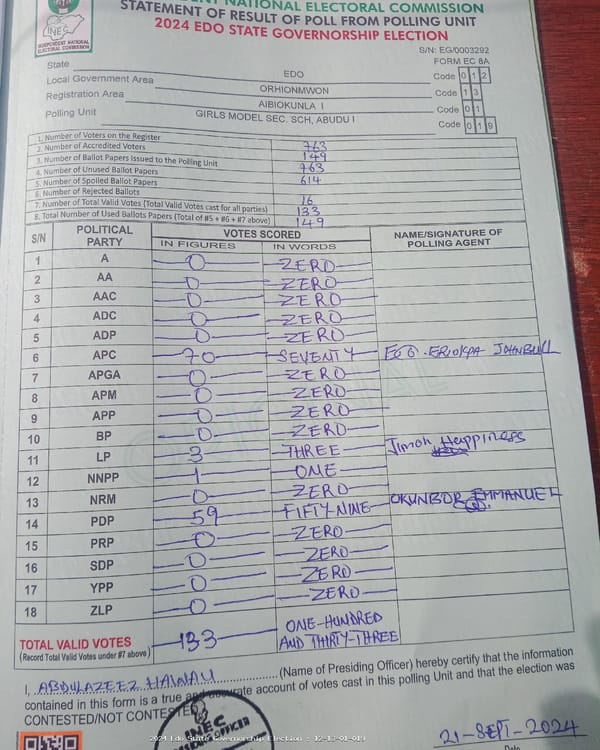 INDEPENDENT NATIONAL ELECTORAL COMMISSION
STATEMENT OF RESULT OF POLL FROM POLLING UNIT
2024 EDO STATE GOVERNORSHIP ELECTION
INEC
INDEPENDENT NATIONAL
ELECTORAL COMMISSION
S/N: EG/0003292
FORM EC 8A
State EDO Code 0 1 2
Local Government Area ORHIONMWON Code 1 3
Registration Area AIBIOKUNLA I Code 0 1
Polling Unit GIRLS MODEL SEC. SCH, ABUDU I Code 0 1 9
1. Number of Voters on the Register 763
2. Number of Accredited Voters 149
3. Number of Ballot Papers Issued to the Polling Unit 763
4. Number of Unused Ballot Papers 614
5. Number of Spoiled Ballot Papers
6. Number of Rejected Ballots 16
7. Number of Total Valid Votes (Total Valid Votes cast for all parties) 133
8. Total Number of Used Ballots Papers (Total of #5 + #6 + #7 above) 149
S/N POLITICAL PARTY VOTES SCORED NAME/SIGNATURE OF POLLING AGENT
IN FIGURES IN WORDS
1 A 0 ZERO
2 AA 0 ZERO
3 AAC 0 ZERO
4 ADC 0 ZERO
5 ADP 0 ZERO
6 APC 70 SEVENTY JOHNBULL
7 APGA 0 ZERO
8 APM 0 ZERO
9 APP 0 ZERO
10 BP 0 ZERO
11 LP 3 THREE Jimoh Happiness
12 NNPP 1 ONE
13 NRM 0 ZERO
14 PDP 59 FIFTY-NINE OKUNBOR EMMANUEL
15 PRP 0 ZERO
16 SDP 0 ZERO
17 YPP 0 ZERO
18 ZLP 0 ZERO
TOTAL VALID VOTES 133 ONE-HUNDRED
(Record Total Valid Votes under #7 above) AND THIRTY-THREE
I, ABDULAZEEZ (Name of Presiding Officer) hereby certify that the information
contained in this form is a true and accurate account of votes cast in this polling Unit and that the election was
CONTESTED/NOT CONTESTED
INEC
21-SEPT-2024
Date
2024 Edo State Governorship Election : 12-13-01-019